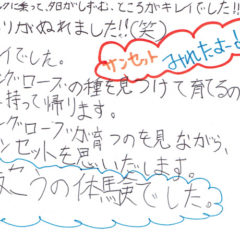 クに乗って、夕日がしずむ、ところがキレイでした!!
りがぬれました!!(笑)
サンセットみれたよー♪
イでした。
ングローブの種を見つけて育てるの
持って帰ります。
ングローブが育つのを見ながら、
ンセットを思いだします。
うの体験でした。